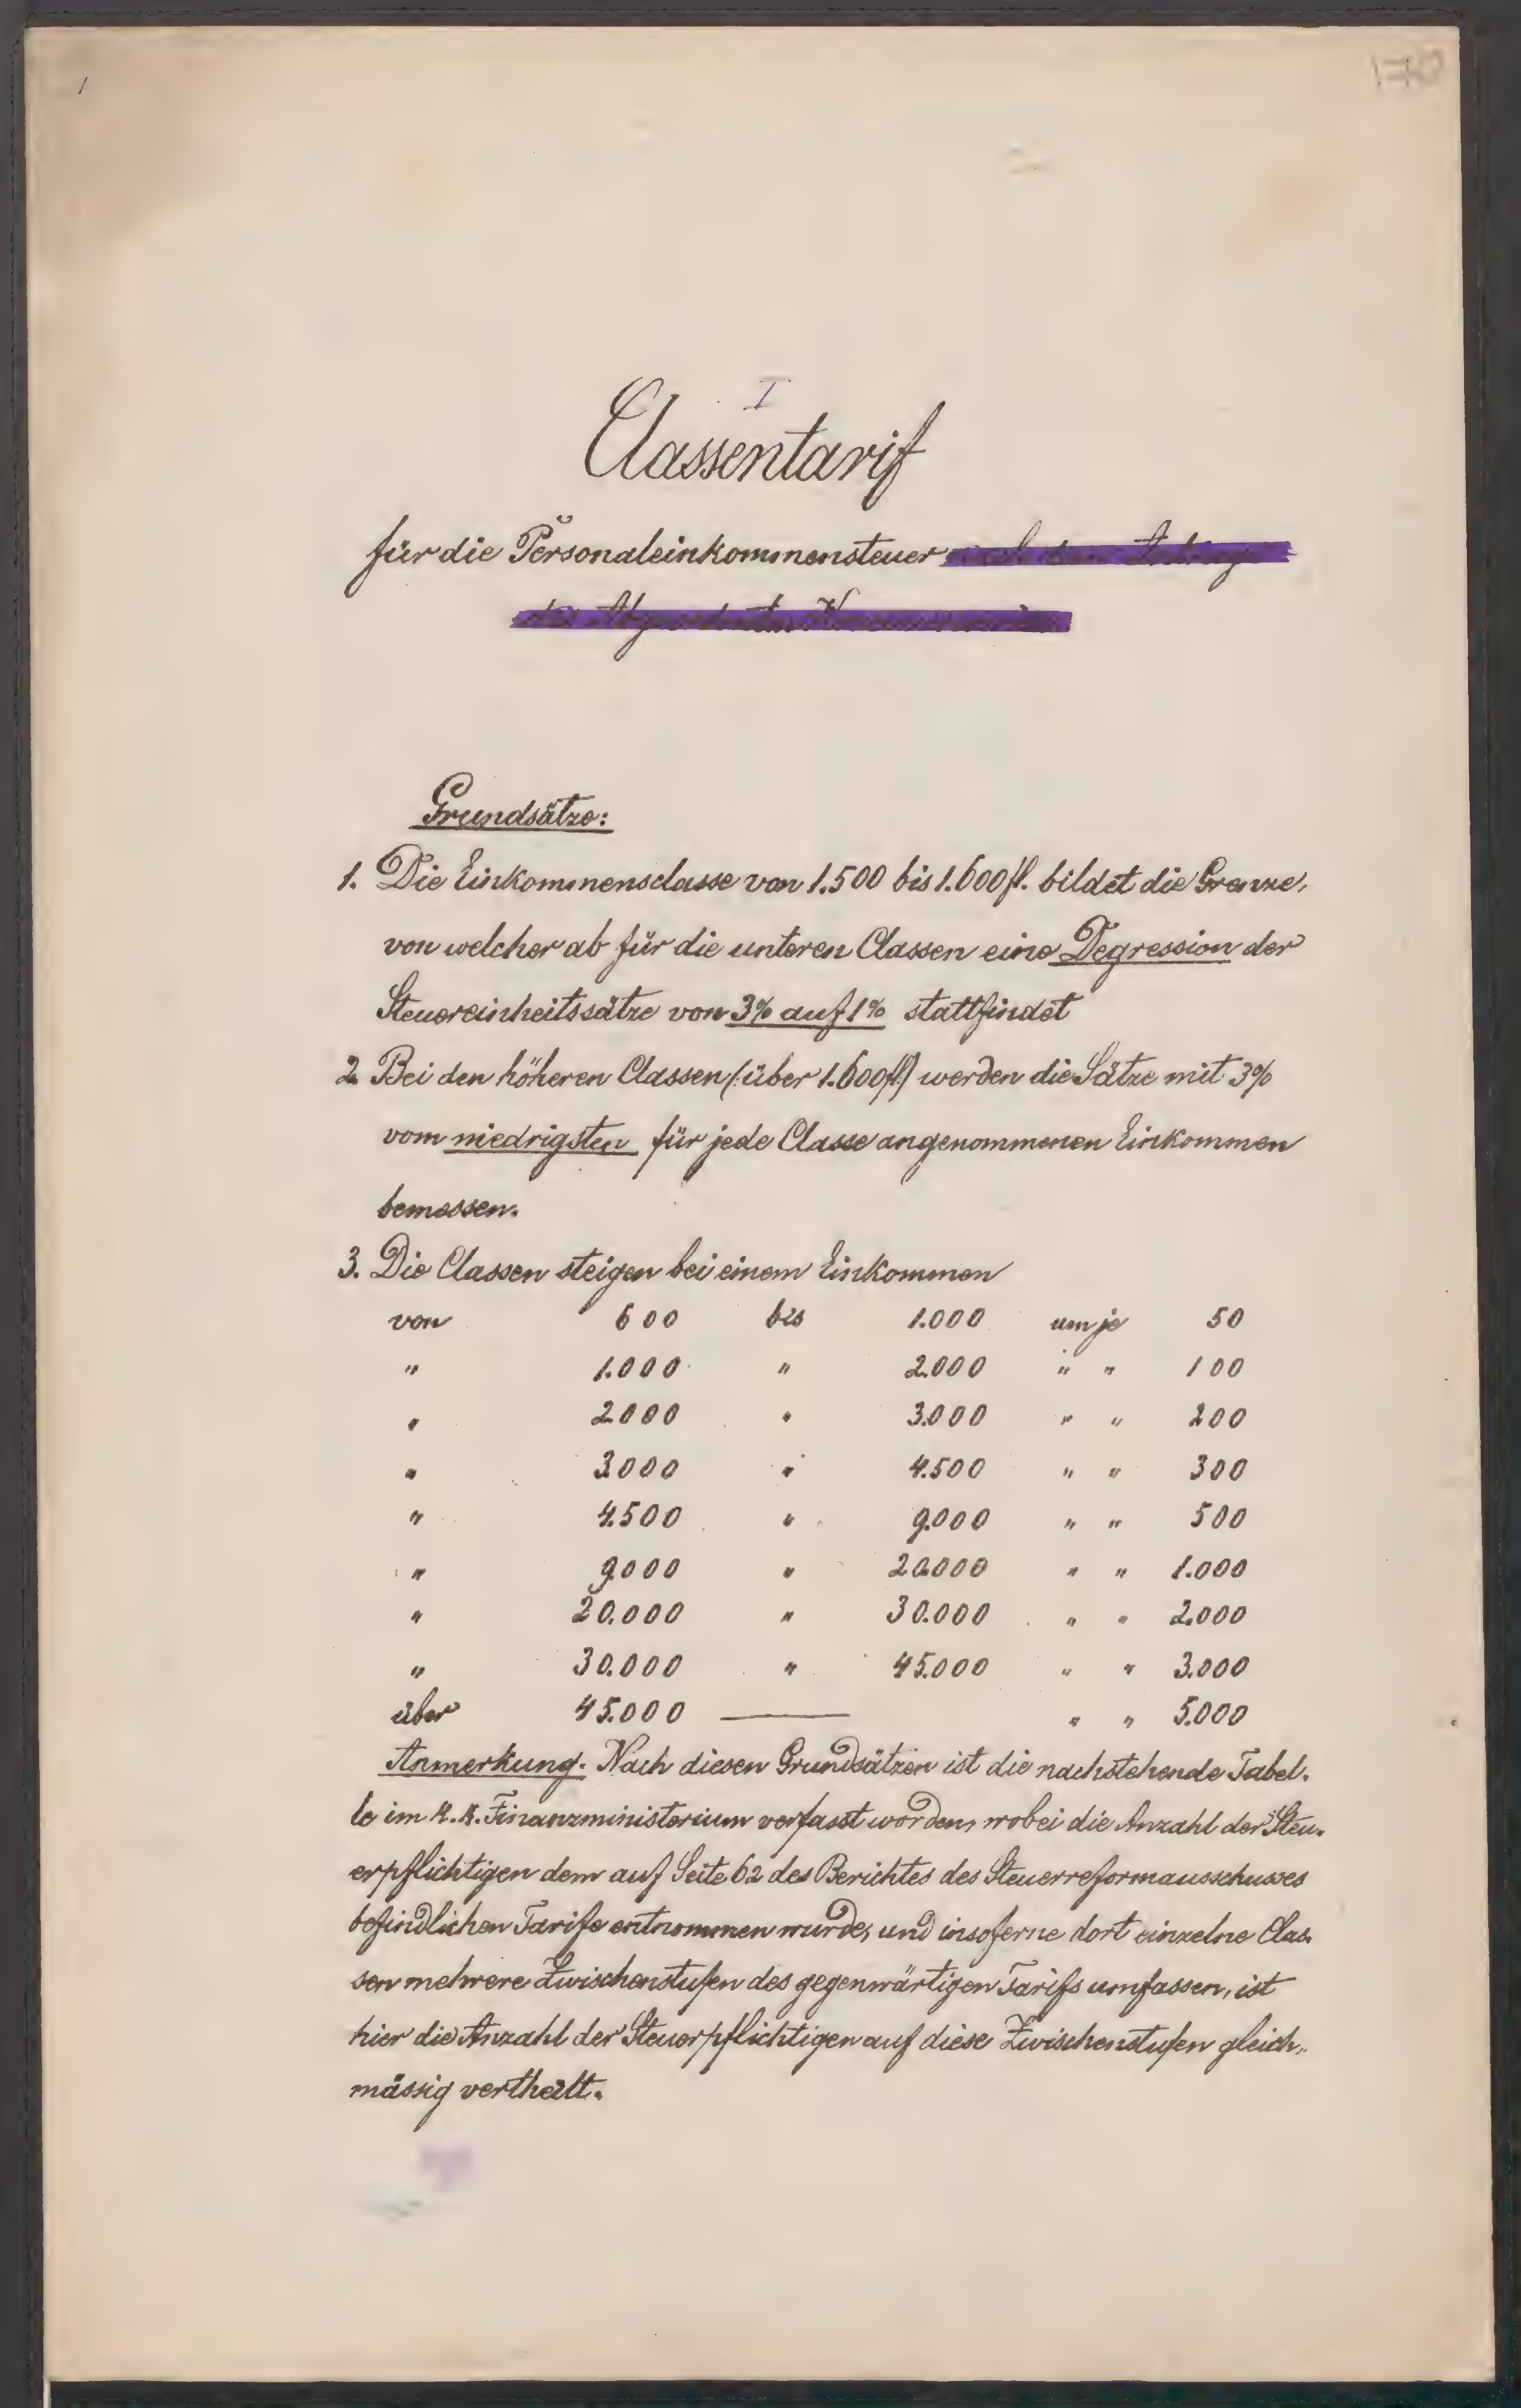 I
Classentarif
für die Personaleinkommensteuer
Grundsätze:
1. Die Einkommensclasse von 1.500 bis 1.600 fl. bildet die Grenze,
von welcher ab für die unteren Classen eine Degression der
Steuereinheitssätze von 3% auf 1% stattfindet
2. Bei den höheren Classen (: über 1.600 fl) werden die Sätze mit 3%
vom niedrigsten für jede Classe angenommenen Einkommen
bemessen.
3. Die Classen steigen bei einem Einkommen
von 600 bis 1.000 um je 50
" 1.000 " 2.000 " " 100
" 2000 " 3.000 " " 200
" 3000 " 4.500 " " 300
" 4.500 " 9.000 " " 500
" 9.000 " 20.000 " " 1.000
" 20.000 " 30.000 " " 2.000
" 30.000 " 45.000 " " 3.000
über 45.000 — " " 5.000
Anmerkung. Nach diesen Grundsätzen ist die nachstehende Tabel-
le im K.K. Finanzministerium verfasst worden, wobei die Anzahl der Steu-
erpflichtigen dem auf Seite 62 des Berichtes des Steuerreformausschusses
befindlichen Tarife entnommen wurde, und insoferne dort einzelne Clas-
sen mehrere Zwischenstufen des gegenwärtigen Tarifs umfassen, ist
hier die Anzahl der Steuerpflichtigen auf diese Zwischenstufen gleich-
mässig vertheilt.